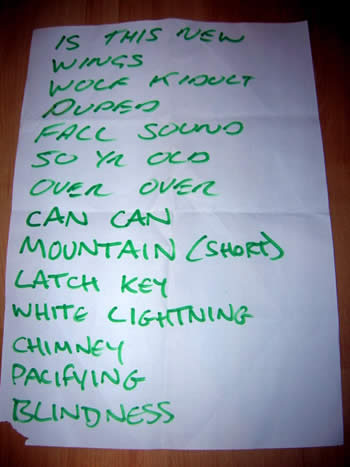 IS THIS NEW
WINGS
WOLF KIDULT
DUPED
FALL SOUND
50 YR OLD
OVER OVER
CAN CAN
MOUNTAIN (SHORT)
LATCH KEY
WHITE LIGHTNING
CHIMNEY
PACIFYING
BLINDNESS